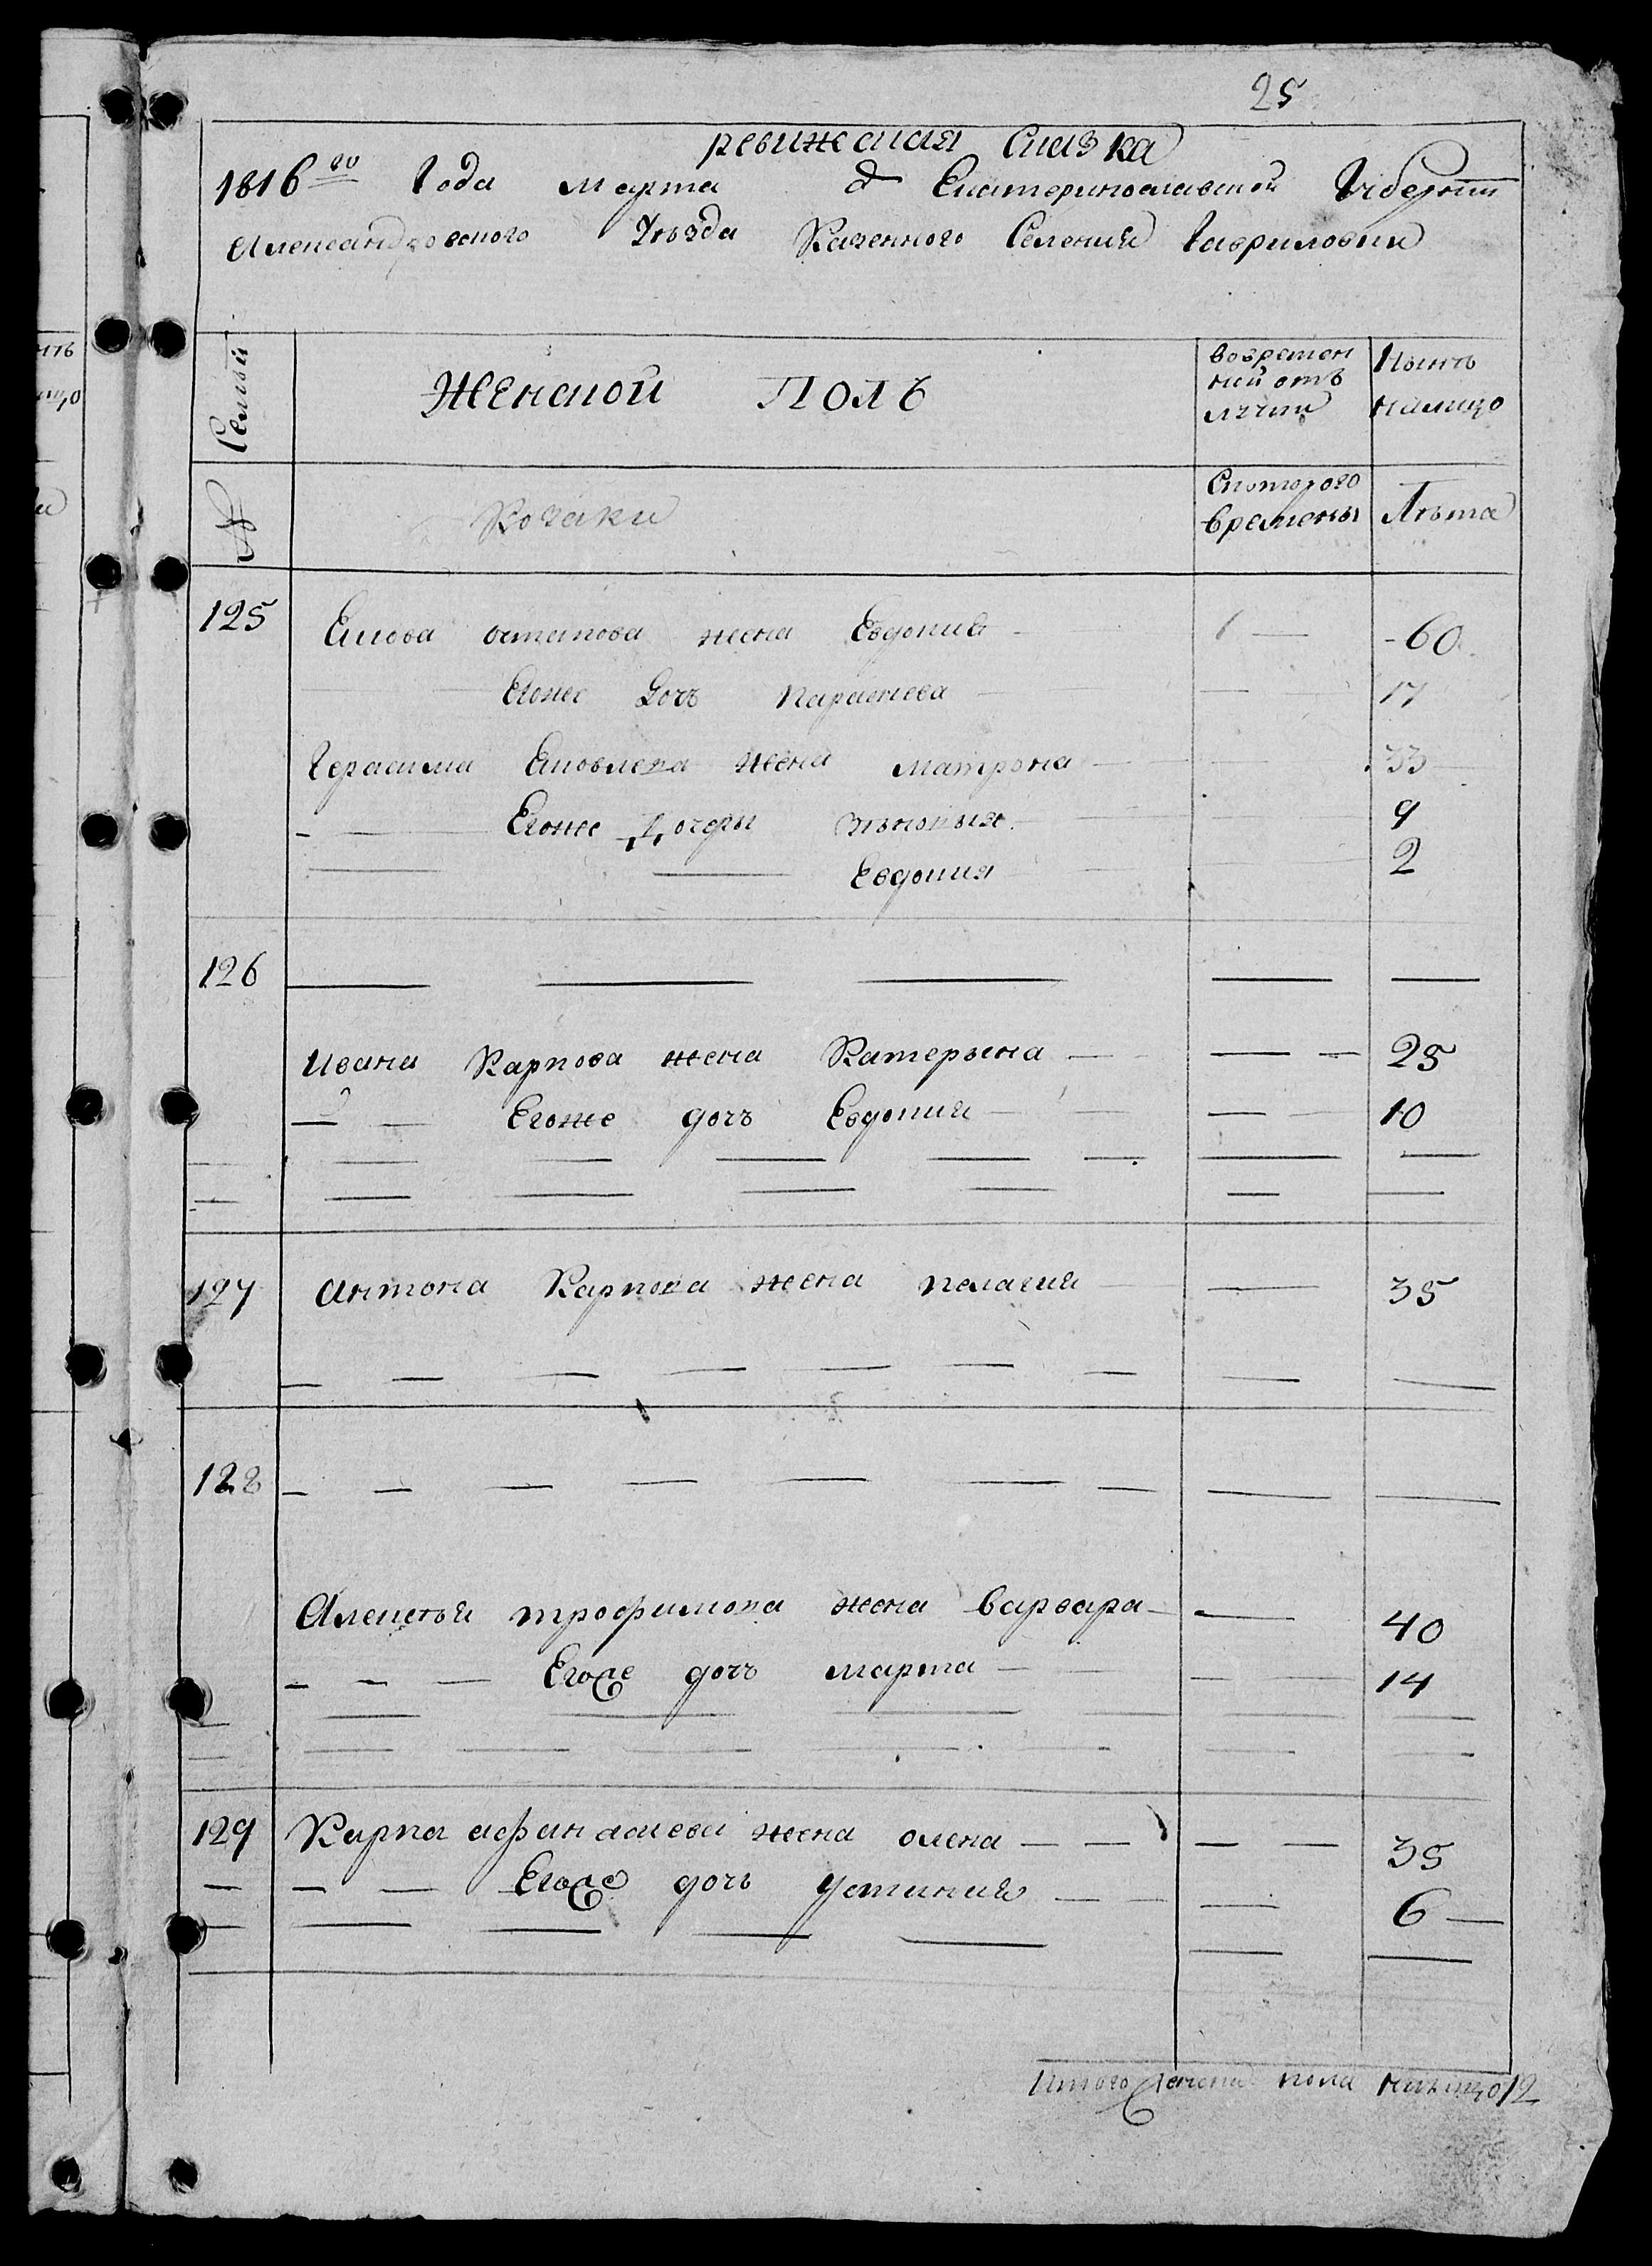 25
ревижская Сказка
1816го Года Марта д Екатеринославской Губернии
Александровского Уѣзда Казенного Селения Гавриловки
Семьи
Женской Полъ
вовремен
ной отъ
лучки
Нынѣ
налицо
№
Козаки
Скоторого
времены
Лѣта
125 Якова Остапова жена Евдокия 60
Егоже Дочь Параскева 17
Герасима Яковлева жена матрона 33
Егоже Дочеры 9
Евдокия 2
126
Ивана Карпова жена Катерына 25
Егоже дочь Евдокия 10
127 Антона Карпова жена пелагия 35
128
Алексѣя трофимова жена варвара 40
Егоже дочь марта 14
129 Карпа афанасиева жена олена 35
Егоже дочь устиния 6
Итого женска пола налицо 12